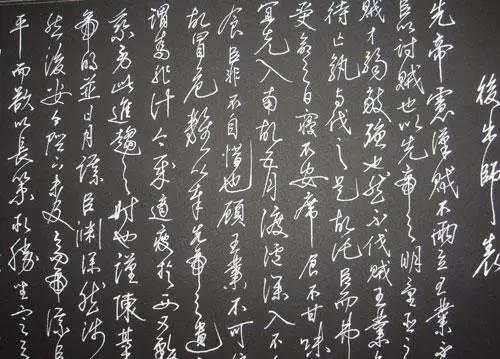 後出師表
先帝慮漢賊不兩立王業不
臣以討賊也以先帝之明量臣之
賊才弱敵強也然不伐賊王業亦
待亡孰與伐之是故託臣而弗
受命之日寢不安席食不甘味
宜先入南故五月渡瀘深入不
食臣非不自惜也顧王業不可得
故冒危難以奉先帝之遺
謂為非計今賊適疲於西又務
乘勞此進趨之時也謹陳其
帝明並日月謀臣淵深然涉
然後安今陛下未及高帝謀臣
平而欲以長策取勝坐定天